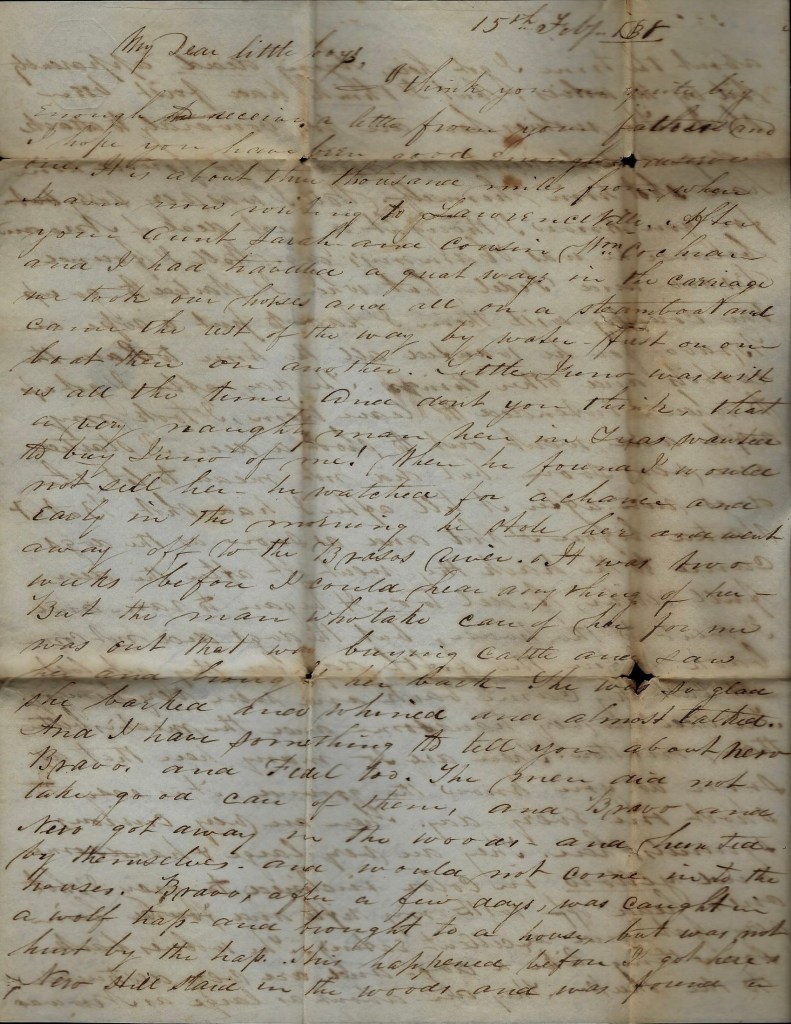 15th Feby
My Dear little boys,
I think you quite big
enough to receive a letter from your father and
I hope you have been good enough to deserve
one. It is about three thousand miles from where
I am now writing to Lawrenceville. After
your Aunt Sarah and cousin Wm Cochran
and I had traveled a great ways in the carriage
we took our horses and all on a steamboat and
came the rest of the way by water - first on one
boat then on another. Little Juno was with
us all the time and don't you think, that
a very naughty man here in Texas wanted
to buy Juno of me! When he found I would
not sell her - he watched for a chance and
early in the morning he stole her and went
away off to the Brasos river. It was two
weeks before I could hear anything of her -
But the man who take care of her for me
was out that way buying cattle and saw
her and brought her back - She was so glad
she barked and whined and almost talked.
And I have something to tell you about Nero
Bravo, and Fidel too. The men did not
take good care of them, and Bravo and
Nero got away in the woods - and hunted
by themselves - and would not come in to the
houses. Bravo, after a few days, was caught in
a wolf trap - and brought to a house, but was not
hurt by the trap. This happened before I got here &
Nero still staid in the woods - and was found in